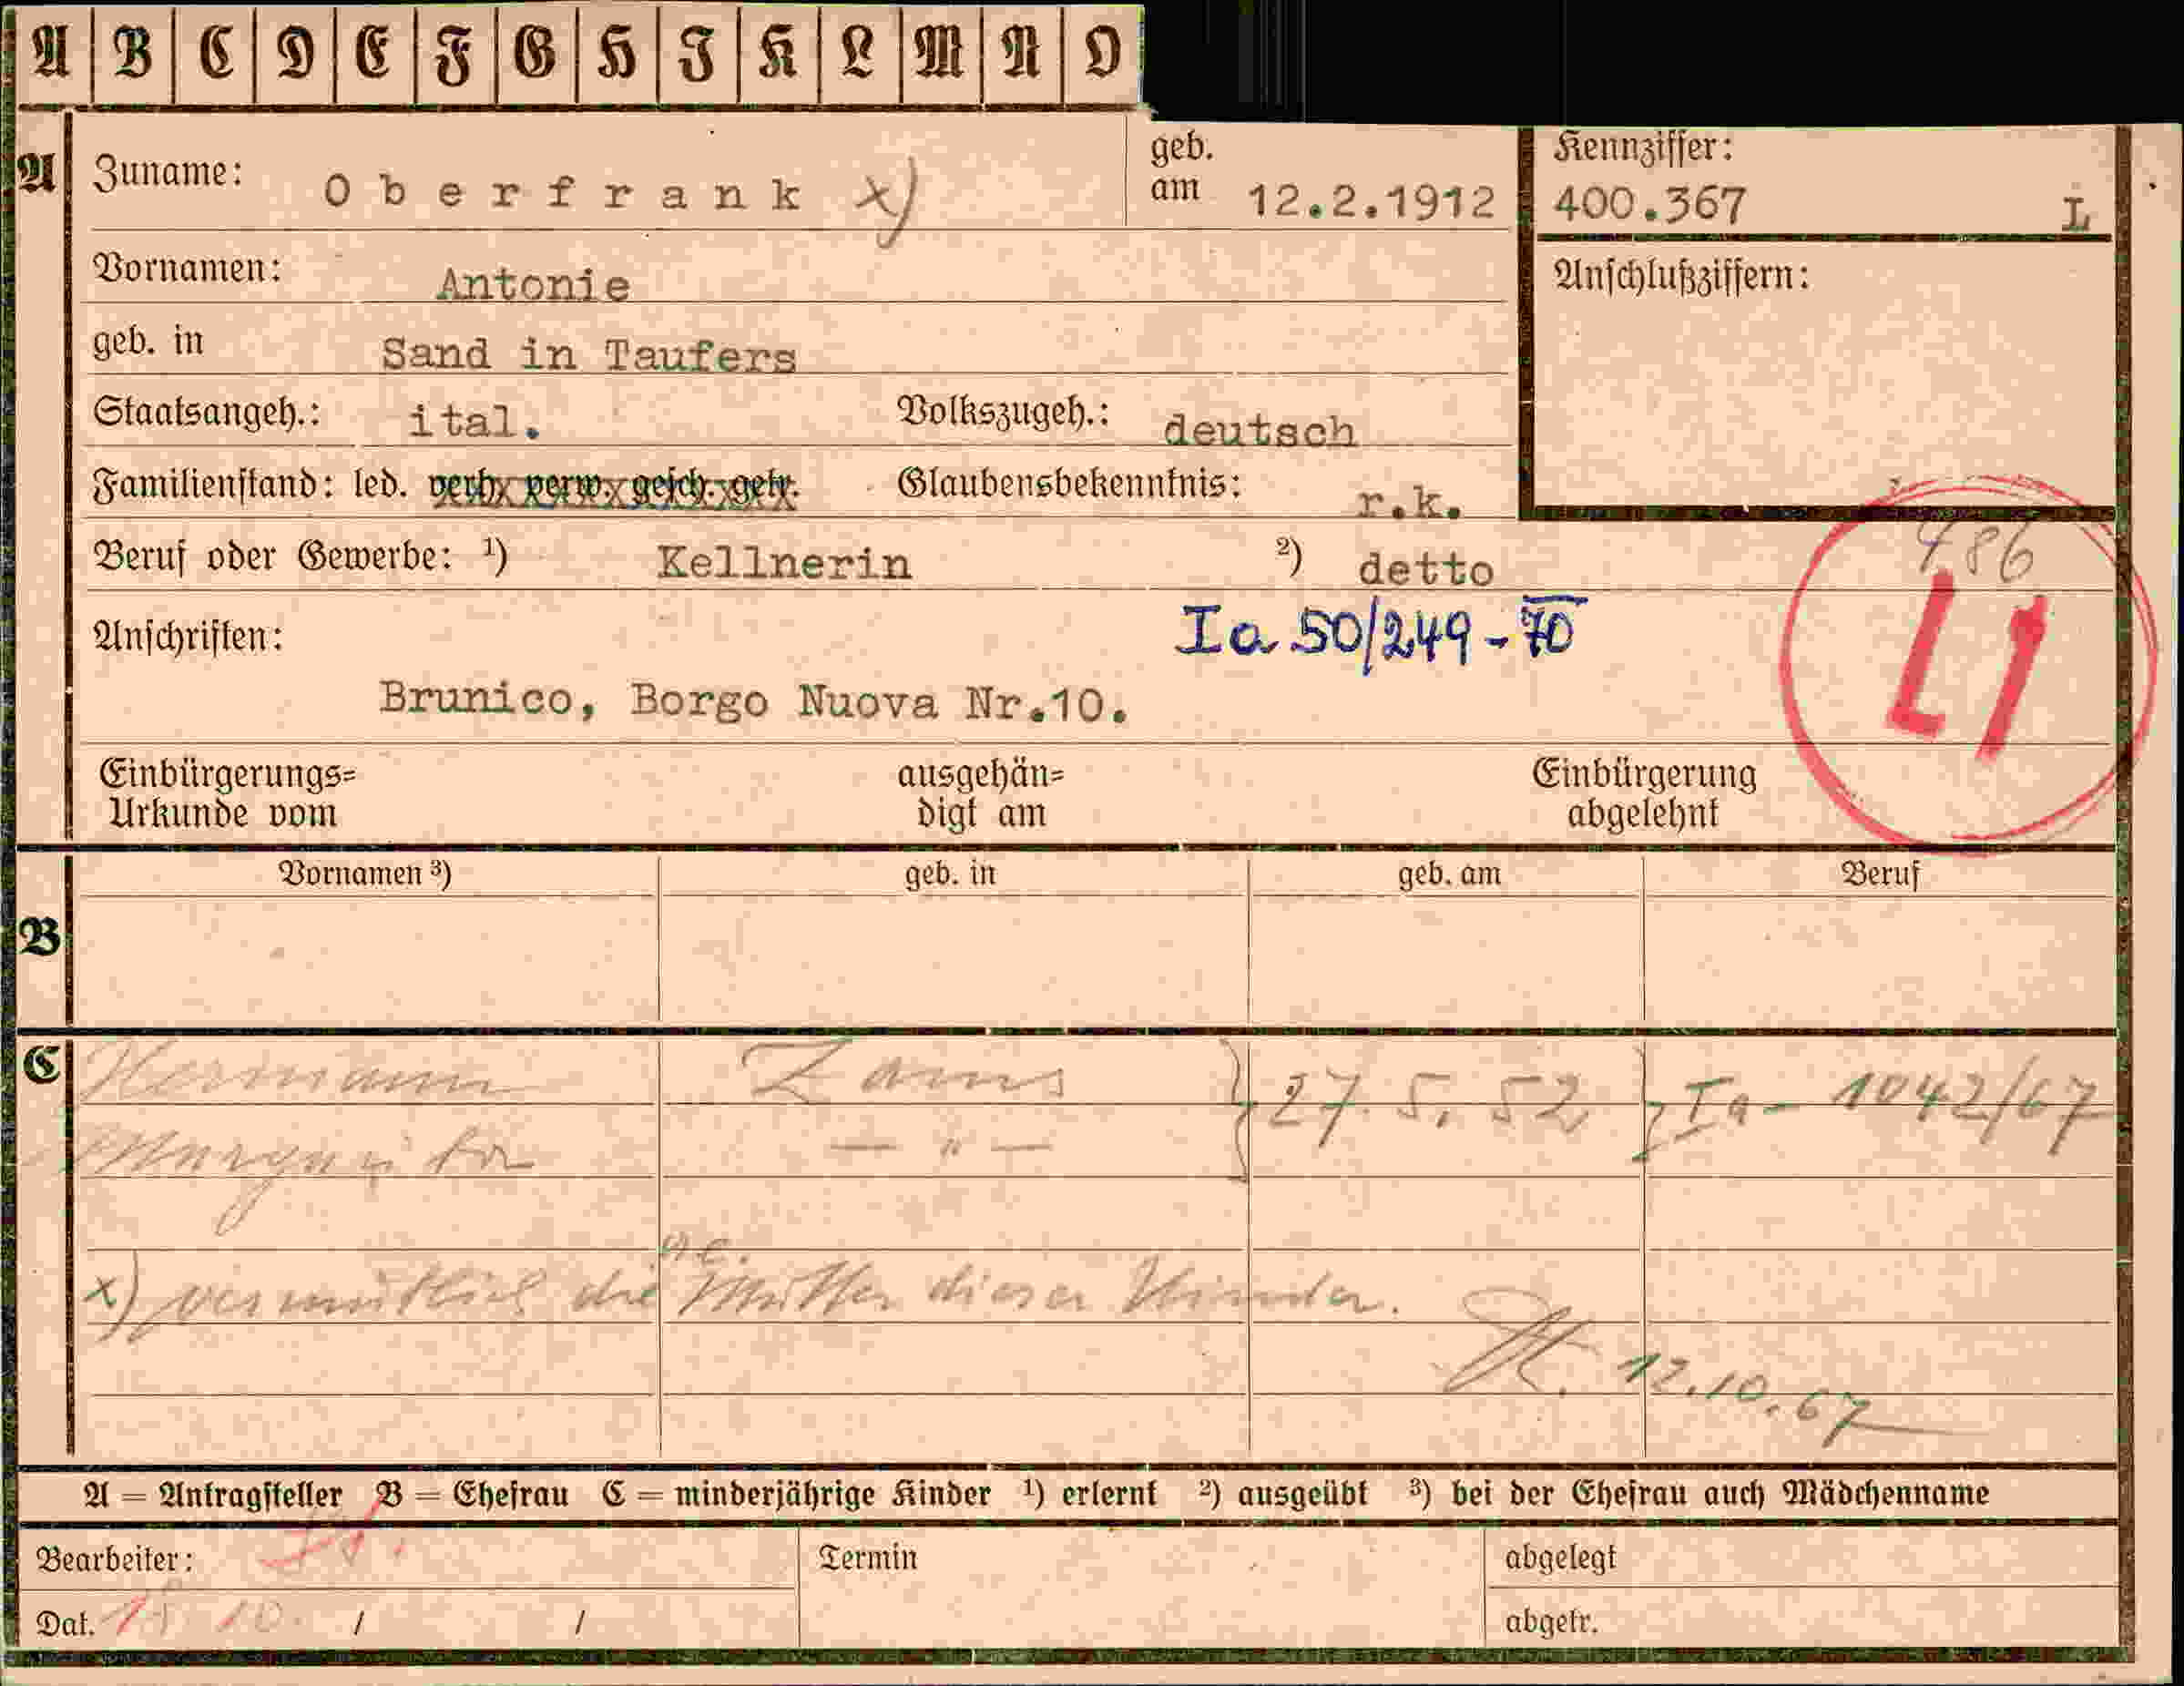 A B C D E F G H J K L M N O
A Zuname: Oberfrank x) geb. am 12.2.1912 Kennziffer: 400.367 L
Vornamen: Antonie Anschlußziffern:
geb. in Sand in Taufers
Staatsangeh.: ital. Volkszugeh.: deutsch
Familienstand: led. verh. verw. gesch. getr. Glaubensbekenntnis: r.k.
486
Beruf oder Gewerbe: ¹) Kellnerin ²) detto
Anschriften: Ia 50/249-70
L1
Brunico, Borgo Nuova Nr.10.
Einbürgerungs= ausgehän= Einbürgerung
Urkunde vom digt am abgelehnt
Vornamen ³) geb. in geb. am Beruf
B
C Hermann Zams } 27. 5. 52 } Ia - 1042/67
Margarita — " —
x) vermutlich die Mutter dieser Kinder.
12.10.67
A = Antragsteller B = Ehefrau C = minderjährige Kinder ¹) erlernt ²) ausgeübt ³) bei der Ehefrau auch Mädchenname
Bearbeiter: Termin abgelegt
Dat. 10. / / abgetr.